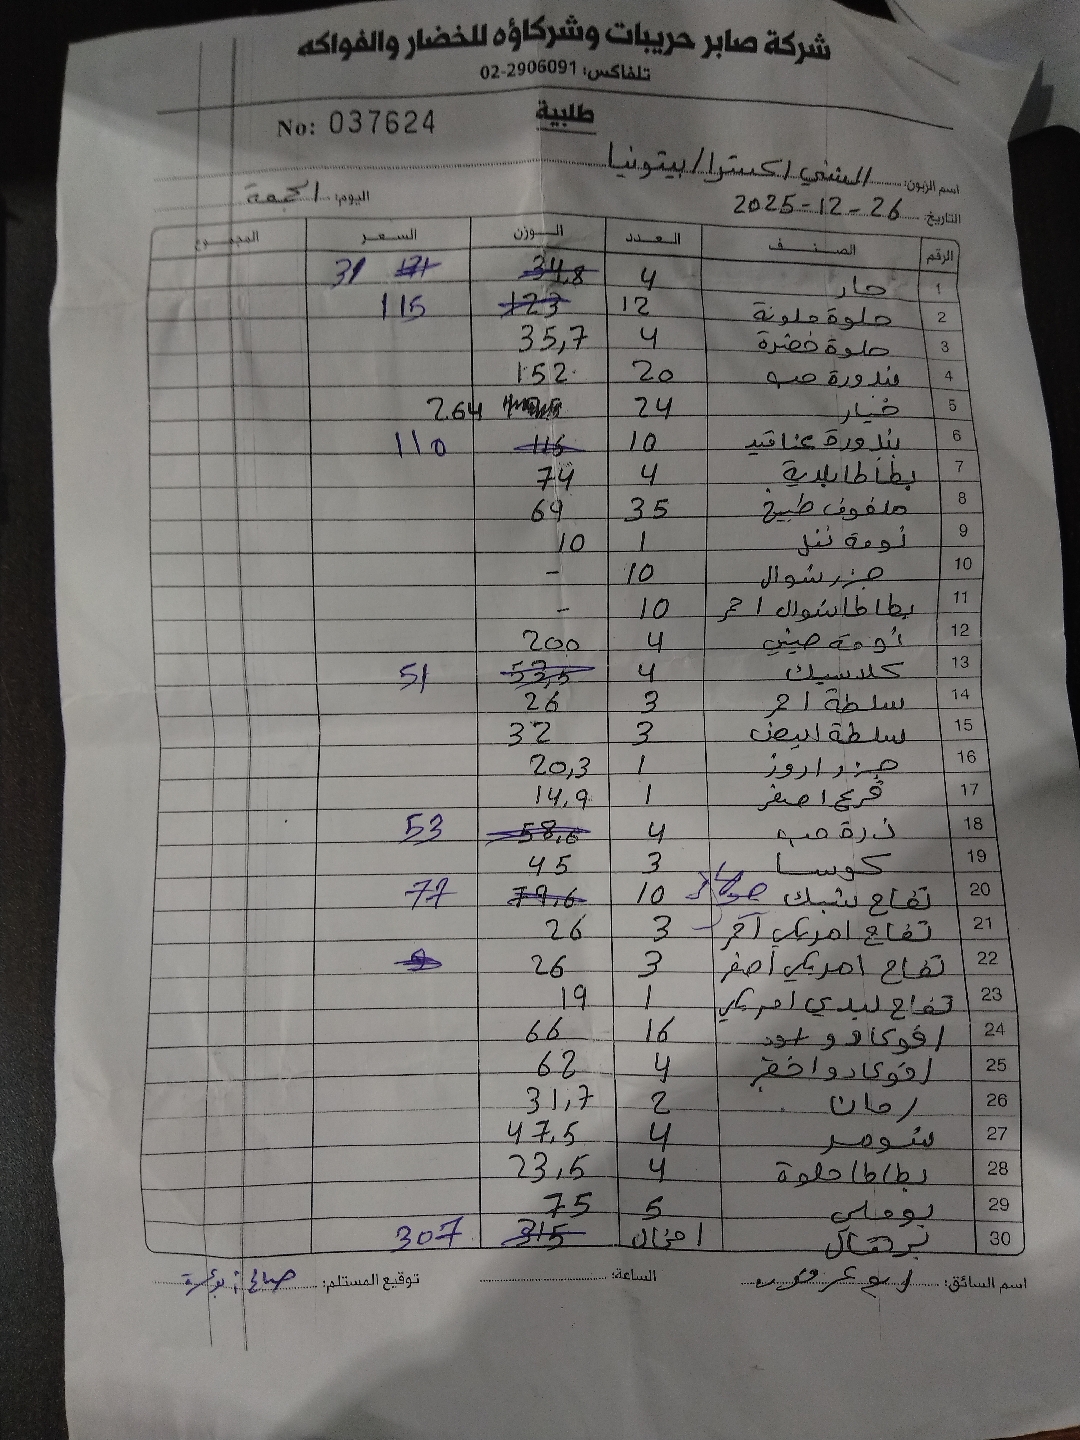 شركة صابر حريبات وشركاؤه للخضار والفواكه
تلفاكس: 02-2906091
طلبية
No: 037624
اسم الزبون: السني اكسترا / بيتونيا
التاريخ: 26-12-2025 اليوم: الجمعة
الرقم الصنف العدد الوزن السعر المجموع
1 حار 4 34,8 31
2 حلوة ملونة 12 123 115
3 حلوة خضرة 4 35,7
4 بندورة حب 20 152
5 خيار 24 264
6 بندورة عناقيد 10 116 110
7 بطاطا بلدية 4 74
8 ملفوف طبيخ 35 69
9 ثومة تنل 1 10
10 جزر شوال 10 -
11 بطاطا شوال احمر 10 -
12 ثومة صيني 4 200
13 كلاسيك 4 53,5 51
14 سلطة احمر 3 26
15 سلطة ابيض 3 32
16 جزر اروز 1 20,3
17 قرع اصفر 1 14,9
18 ذرة حب 4 58,6 53
19 كوسا 3 45
20 تفاح شبك 10 79,6 77
21 تفاح امريكي احمر 3 26
22 تفاح امريكي اصفر 3 26
23 تفاح ليدي امريكي 1 19
24 افوكادو 16 66
25 افوكادو اخضر 4 62
26 رمان 2 31,7
27 شومر 4 47,5
28 بطاطا حلوة 4 23,5
29 بوملي 5 75
30 برتقال 315 307
اسم السائق: الساعة: توقيع المستلم: